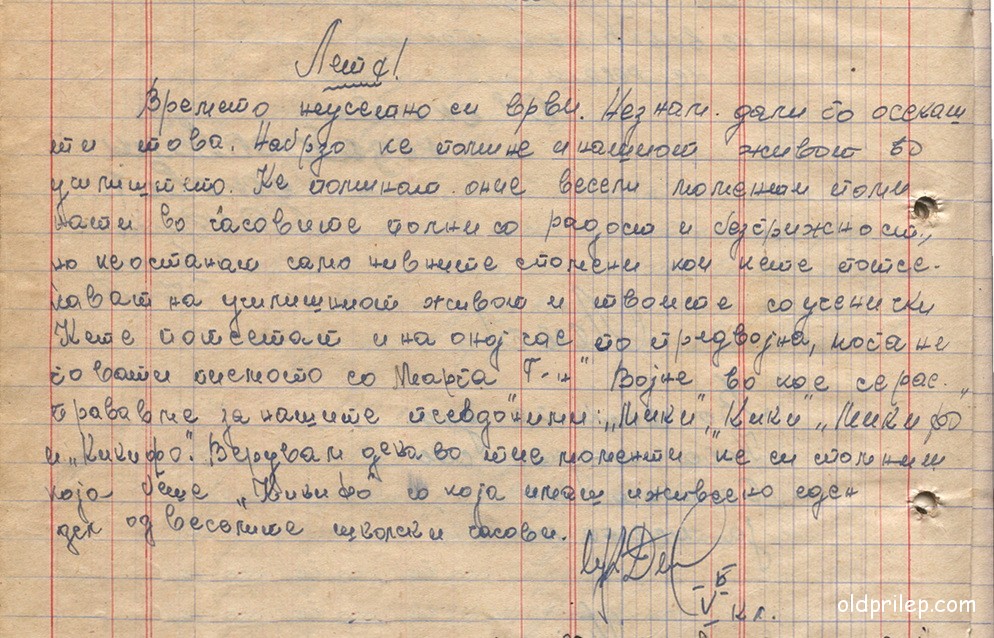 Лепа!
Времето неусетно си врви. Незнам дали го осекаш
ти това. Набрзо ке помине и нашиот живот во
училиштето. Ке поминат оние весели моменти
во часовите полни со радост и безгрижност,
но ке останат само нивните спомени кои ке те потсе-
кават на училишниот живот и твоите соученички
Ке те потсетат и на оној час по предвојна, кога не
фати писмото со Марта Војне во кое се рас-
праваше за нашите псевдоними: „Мики", „Кики" „Микифо
и „Кикифо". Верувам дека во тие моменти ке си спомниш
која беше „Кикифо" со која имаш иживеено еден
дел од веселите школски часови.
V Б кл.
oldprilep.com